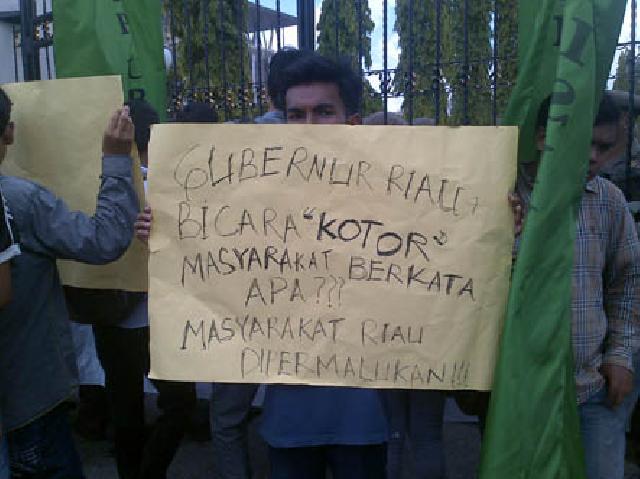 GUBERNUR RIAU,
BICARA "KOTOR"
MASYARAKAT BERKATA
APA???
MASYARAKAT RIAU
DIPERMALUKAN!!!